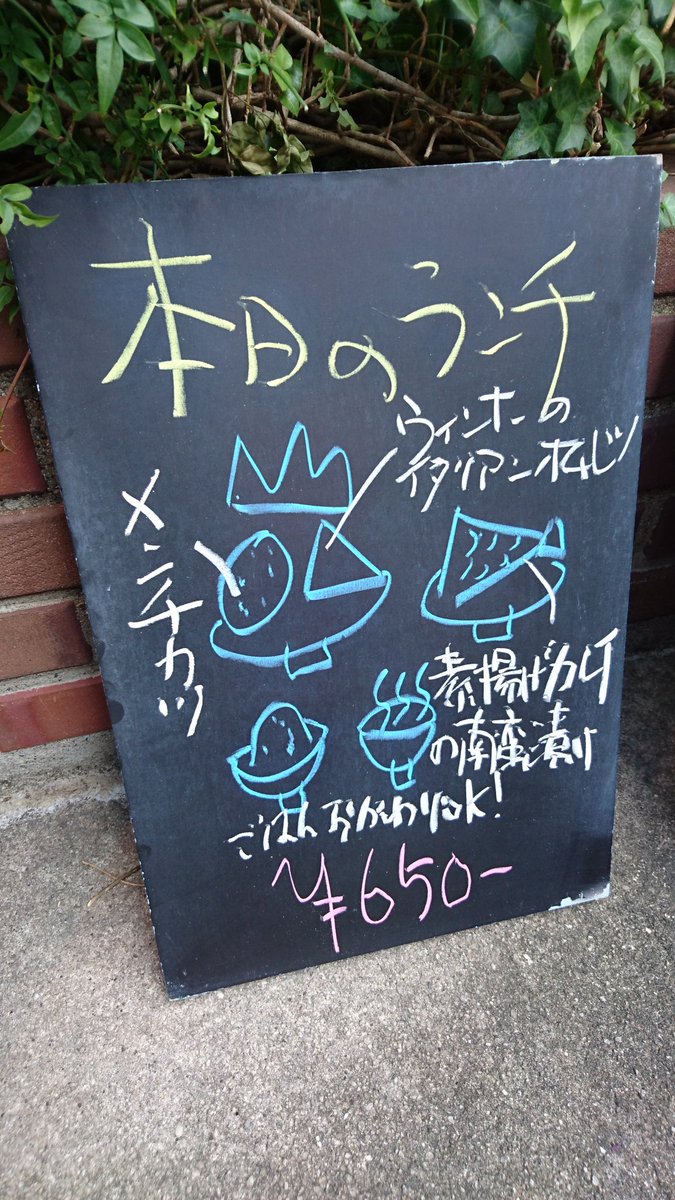 本日のランチ
ウィンナーの
イタリアンオムレツ
メンチカツ
素揚げカレイ
の南蛮漬け
ごはんおかわりok!
¥650-